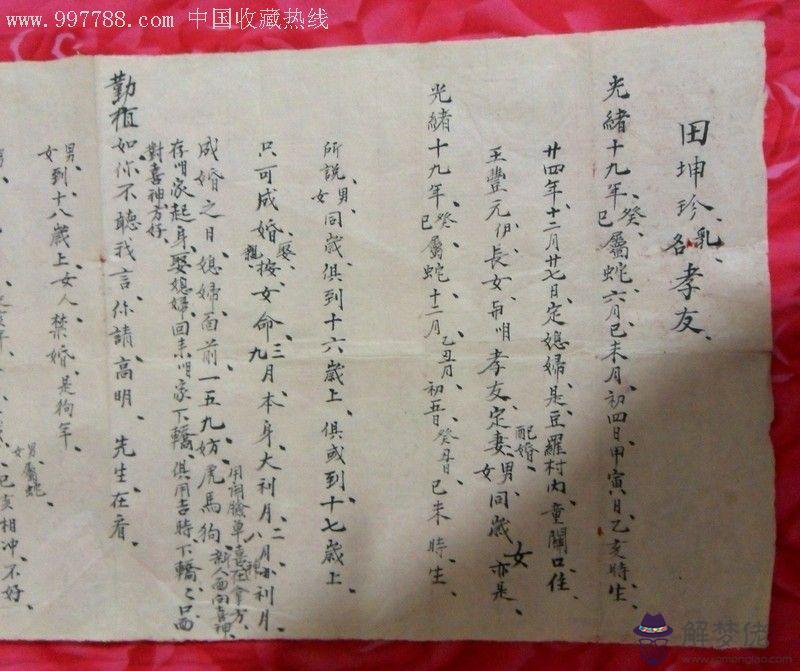 www.997788.com 中国收藏热线
田坤珍、乳名孝友、
光緒十九年、癸巳屬蛇、六月己未月初四日、甲寅日、乙亥時生、
廿四年、十二月廿七日、定媳婦、是豆羅村内、童關口住、
王豐元伊長女、與咱孝友、定妻、配婚、男女同歲、亦是女
光緒十九年、癸巳屬蛇、十二月乙丑月、初五日、癸丑日、己未時生、
所說男、女同歲、俱到十六歲上、俱或到十七歲上、
只可成婚、娶親、按女命、三月九月本身大利月、二月八月小利月、
成婚之日、媳婦面前一五九妨、虎馬狗、
存咱家起身、娶媳婦回來咱家下轎、俱用吉時下轎、
對喜神方好、
勤植如你不聽我言、你請高明、先生在看、
男、女到十八歲上、女人禁婚、是狗年、
男、女屬蛇、
巳亥相冲、不好、
解梦佬